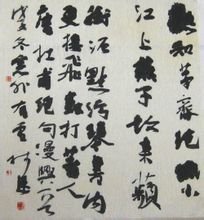 熟知茅齋絕低小
江上燕子故來頻
銜泥點污琴書內
更接飛虫打著人
唐杜甫絕句漫興
冬寒